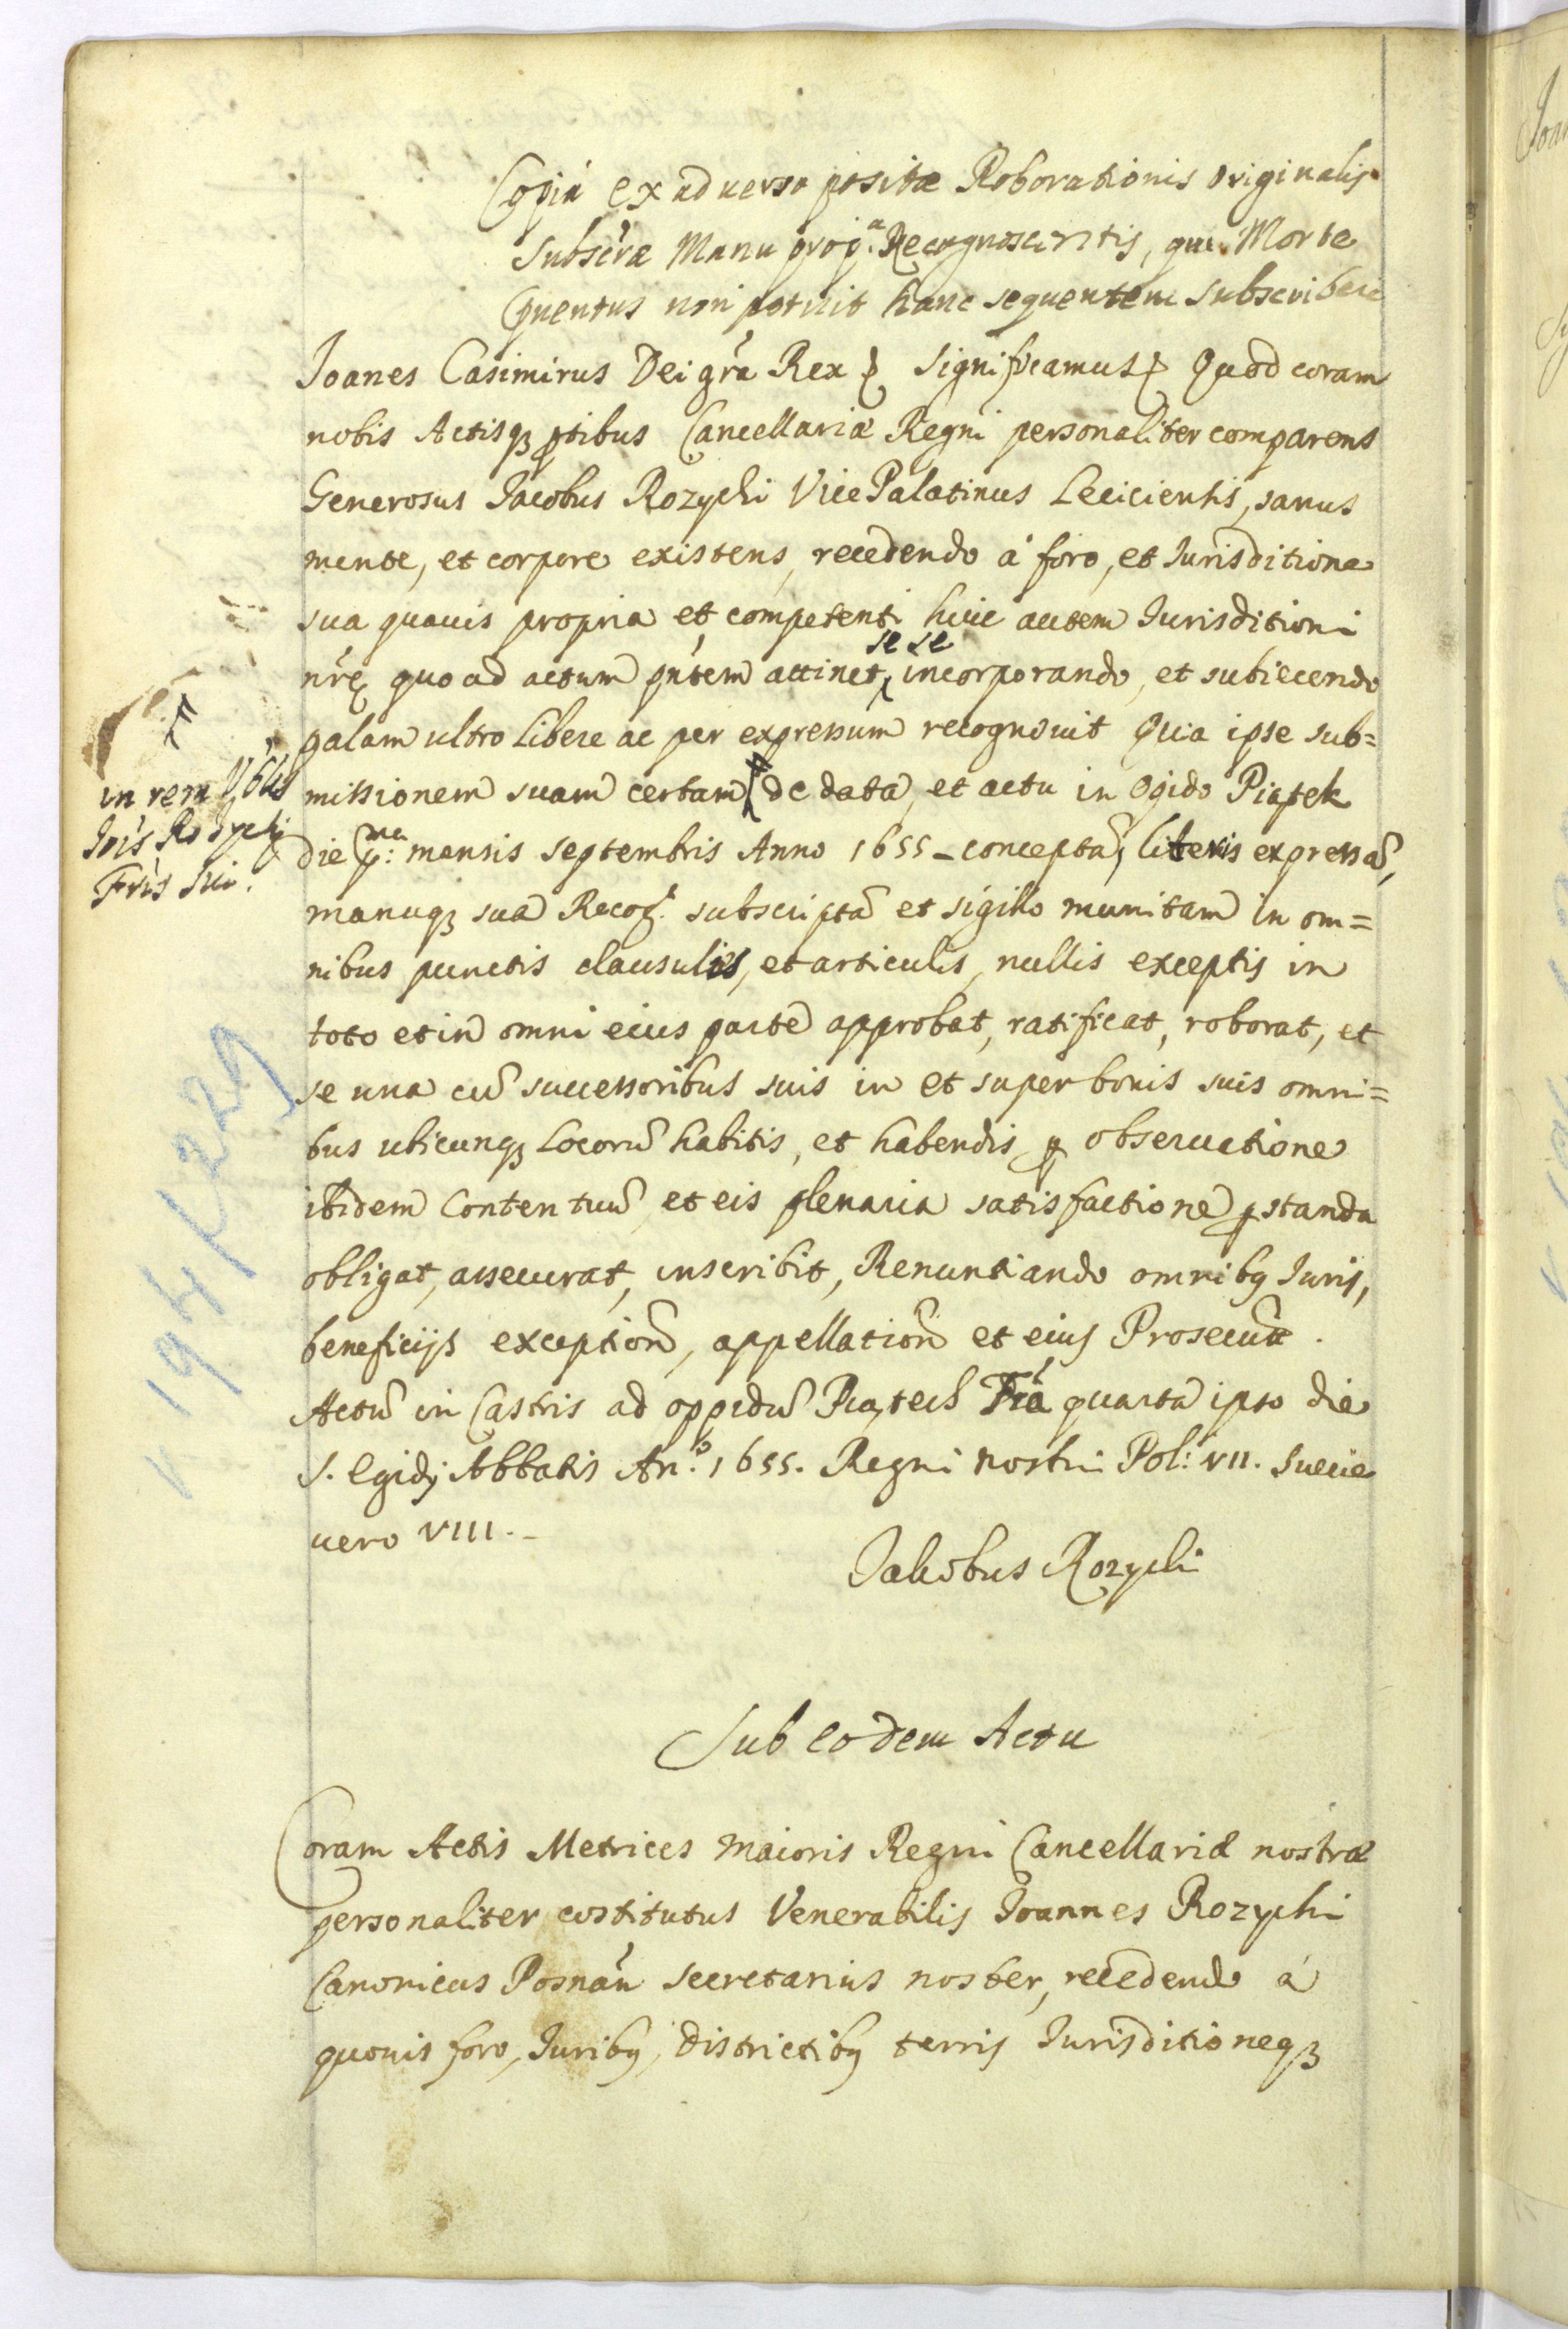 Copia ex aduerso positæ Roborationis originalis
Subscræ Manu prop.a Recognoscentis, qui Morte
Pruentus non potuit hanc sequentem subscribere
Joanes Casimirus Dei gra Rex Significamus Quod coram
nobis Actisqȝ ptibus Cancellariæ Regni personaliter comparens
Generosus Jacobus Rozycki Vice Palatinus Leciciensis, sanus
mente, et corpore existens, recedendo à foro, et Jurisditione
sua quauis propria et competenti huic autem Jurisditioni
nrę quo ad actum pntem attinet, se se incorporando, et subiiciendo
palam ultro Libere ac per expressum recognouit Quia ipse sub=
in rem Vblis
Jois Rozycki
Fris sui.
missionem suam certam de data, et actu in Opido Piątek
die p:ma mensis Septembris Anno 1655 - concepta, literis expressa,
manuqȝ sua Recog. subscripta et sigillo munitam in om=
nibus punctis clausulis, et articulis, nullis exceptis in
toto et in omni eius parte approbat, ratificat, roborat, et
se una cu successoribus suis in et super bonis suis omni=
bus ubicunqȝ Locoru habitis, et habendis p obseruatione
ibidem Contentuu, et eis plenaria satisfactione pstanda
obligat, assecurat, inscribit, Renuntiando omnibq Juris,
beneficijs exception, appellation et eius Prosecut.
Actu in Castris ad oppidu Piątech Fria quarta ipso die
S. Egidij Abbatis An.o 1655. Regni nostri Pol: VII. Sueciæ
uero VIII.-
Jakobus Rozycki
Sub eodem Actu
Coram Actis Metrices Maioris Regni Cancellariæ nostræ
personaliter costitutus Venerabilis Joannes Rozycki
Canonicus Posnan Secretarius noster, recedendo à
quouis foro, Juribq, Districtibq terris Jurisditioneqȝ